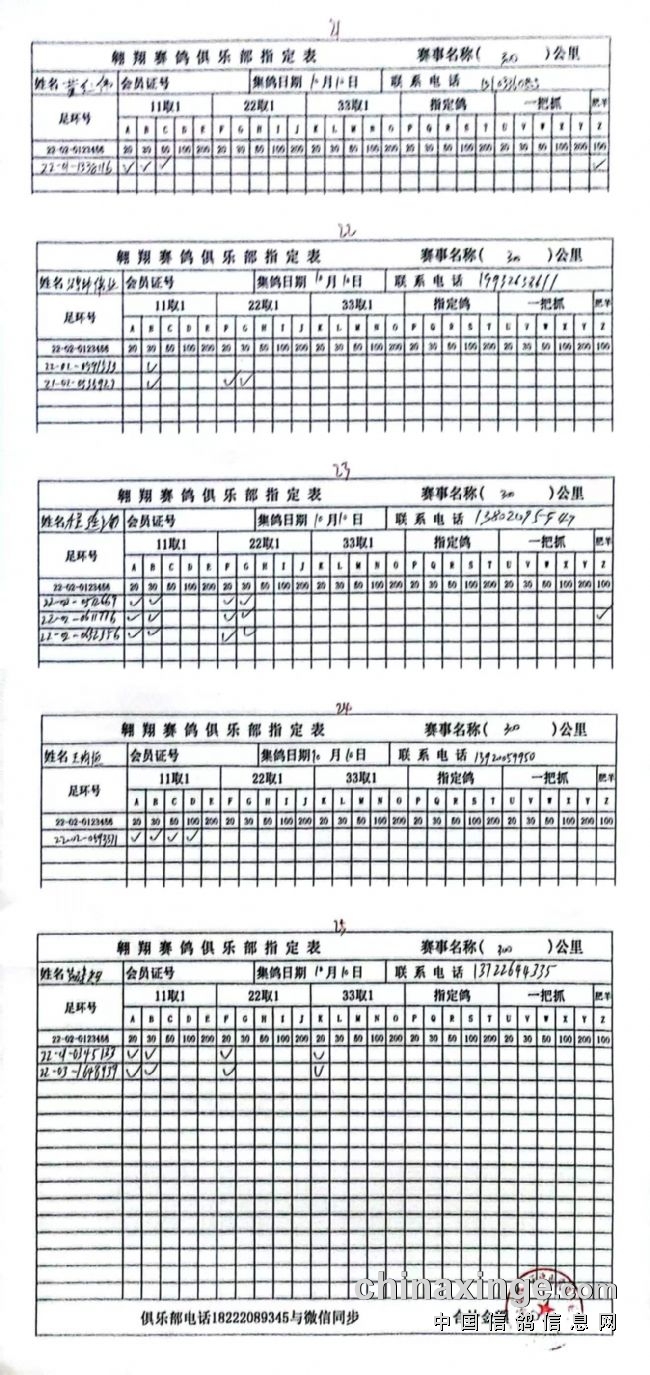 21
翱翔赛鸽俱乐部指定表 赛事名称( 300 )公里
姓名 会员证号 集鸽日期 10月10日 联系电话
足环号 11取1 22取1 33取1 指定鸽 一把抓 肥羊
A B C D E F G H I J K L M N O P Q R S T U V W X Y Z
22-02-0123456 20 30 50 100 200 20 30 50 100 200 20 30 50 100 200 20 30 50 100 200 20 30 50 100 200 100
22-01-1338116 ✓ ✓ ✓ ✓
22
翱翔赛鸽俱乐部指定表 赛事名称( 300 )公里
姓名 会员证号 集鸽日期 10月10日 联系电话 19932632611
足环号 11取1 22取1 33取1 指定鸽 一把抓 肥羊
A B C D E F G H I J K L M N O P Q R S T U V W X Y Z
22-02-0123456 20 30 50 100 200 20 30 50 100 200 20 30 50 100 200 20 30 50 100 200 20 30 50 100 200 100
22-02-0591333 ✓
21-02-0536923 ✓ ✓ ✓
23
翱翔赛鸽俱乐部指定表 赛事名称( 300 )公里
姓名 会员证号 集鸽日期 10月10日 联系电话
足环号 11取1 22取1 33取1 指定鸽 一把抓 肥羊
A B C D E F G H I J K L M N O P Q R S T U V W X Y Z
22-02-0123456 20 30 50 100 200 20 30 50 100 200 20 30 50 100 200 20 30 50 100 200 20 30 50 100 200 100
22-02-0512669 ✓ ✓ ✓ ✓
22-02-0611776 ✓ ✓ ✓ ✓ ✓
22-02-0632356 ✓ ✓ ✓ ✓
24
翱翔赛鸽俱乐部指定表 赛事名称( 300 )公里
姓名 会员证号 集鸽日期 10月10日 联系电话 13920059950
足环号 11取1 22取1 33取1 指定鸽 一把抓 肥羊
A B C D E F G H I J K L M N O P Q R S T U V W X Y Z
22-02-0123456 20 30 50 100 200 20 30 50 100 200 20 30 50 100 200 20 30 50 100 200 20 30 50 100 200 100
22-02-0593571 ✓ ✓ ✓ ✓
25
翱翔赛鸽俱乐部指定表 赛事名称( 300 )公里
姓名 会员证号 集鸽日期 10月10日 联系电话 13722694335
足环号 11取1 22取1 33取1 指定鸽 一把抓 肥羊
A B C D E F G H I J K L M N O P Q R S T U V W X Y Z
22-02-0123456 20 30 50 100 200 20 30 50 100 200 20 30 50 100 200 20 30 50 100 200 20 30 50 100 200 100
22-01-0345133 ✓ ✓ ✓ ✓
22-03-1648939 ✓ ✓ ✓ ✓
俱乐部电话18222089345与微信同步
chinaxinge.com
中国信鸽信息网